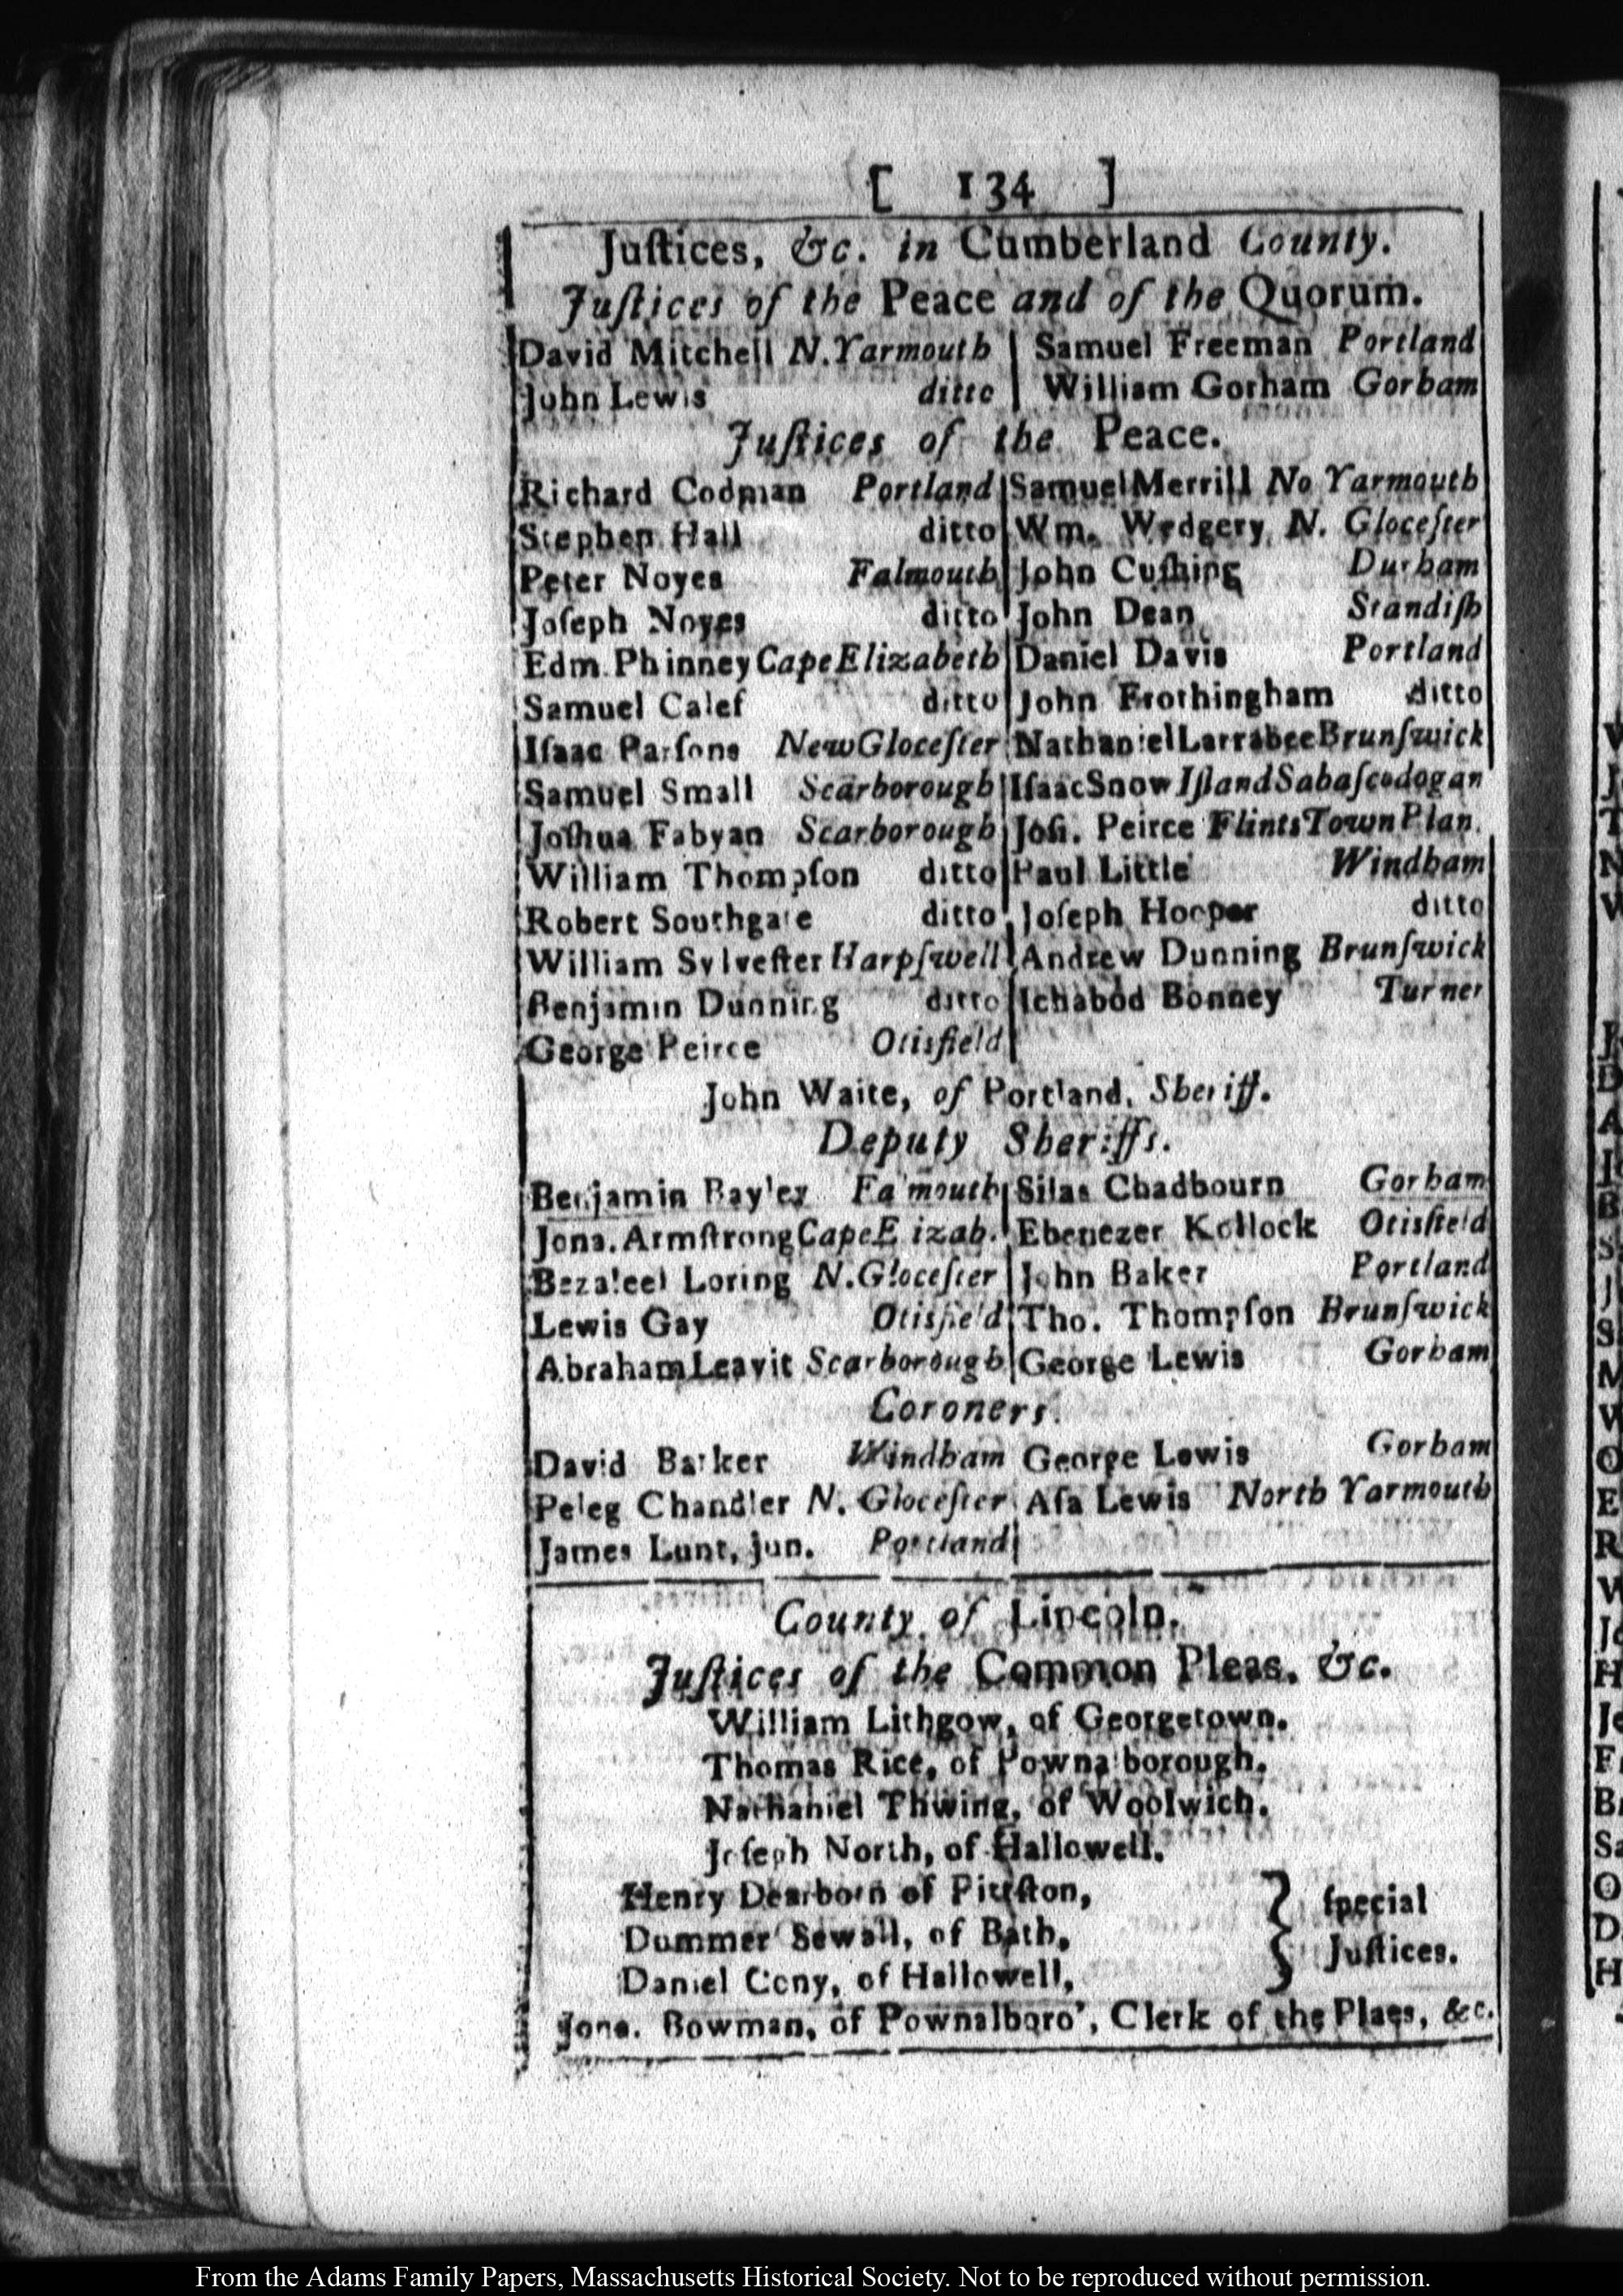 [ 134 ]
Juſtices, &c. in Cumberland County.
Juſtices of the Peace and of the Quorum.
David Mitchell N. Yarmouth | Samuel Freeman Portland
John Lewis ditto | William Gorham Gorham
Juſtices of the Peace.
Richard Codman Portland | Samuel Merrill No Yarmouth
Stephen Hall ditto | Wm. Wedgery, N. Gloceſter
Peter Noyes Falmouth | John Cuſhing Durham
Joſeph Noyes ditto | John Dean Standiſh
Edm. Phinney Cape Elizabeth | Daniel Davis Portland
Samuel Calef ditto | John Frothingham ditto
Iſaac Parſons New Gloceſter | Nathaniel Larrabee Brunſwick
Samuel Small Scarborough | Iſaac Snow Iſland Sabaſcodogan
Joſhua Fabyan Scarborough | Joſi. Peirce Flints Town Plan.
William Thompſon ditto | Paul Little Windham
Robert Southgate ditto | Joſeph Hooper ditto
William Sylveſter Harpſwell | Andrew Dunning Brunſwick
Benjamin Dunning ditto | Ichabod Bonney Turner
George Peirce Otisfield |
John Waite, of Portland, Sheriff.
Deputy Sheriffs.
Benjamin Bayley Falmouth | Silas Chadbourn Gorham
Jona. Armſtrong Cape Elizab. | Ebenezer Kollock Otisfield
Bezaleel Loring N. Gloceſter | John Baker Portland
Lewis Gay Otisfield | Tho. Thompſon Brunſwick
Abraham Leavit Scarborough | George Lewis Gorham
Coroners.
David Barker Windham George Lewis Gorham
Peleg Chandler N. Gloceſter Aſa Lewis North Yarmouth
James Lunt, jun. Portland |
County of Lincoln.
Juſtices of the Common Pleas, &c.
William Lithgow, of Georgetown.
Thomas Rice, of Pownalborough.
Nathaniel Thwing, of Woolwich.
Joſeph North, of Hallowell.
Henry Dearborn of Pittſton,
Dummer Sewall, of Bath,
Daniel Cony, of Hallowell,
} ſpecial
Juſtices.
Jona. Bowman, of Pownalboro', Clerk of the Plaes, &c.
From the Adams Family Papers, Massachusetts Historical Society. Not to be reproduced without permission.